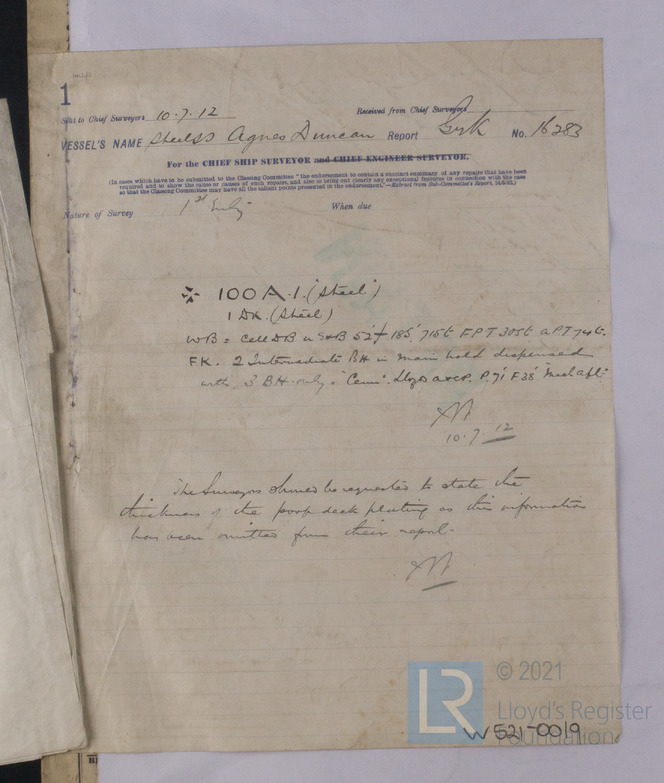 1
Sent to Chief Surveyors 10.7.12 Received from Chief Surveyors
VESSEL'S NAME Steel SS Agnes Duncan Report Grk No. 16283
For the CHIEF SHIP SURVEYOR and CHIEF ENGINEER SURVEYOR.
(In cases which have to be submitted to the Classing Committee "the endorsement to contain a succinct summary of any repairs that have been
required and to show the cause or causes of such repairs, and also to bring out clearly any exceptional features in connection with the case
so that the Classing Committee may have all the salient points presented in the endorsement."—Extract from Sub-Committee's Report,
Nature of Survey 1st Entry When due
100A.1. (Steel)
1 DK. (Steel)
WB = Cell DB u E&B 52' f 185' 715t FPT 305t APT 74t.
FK. 2 Intermediate BH in main hold dispensed
with 3 BH only "Cem". Lloyds a&cp. P.71' F38' Mchy aft.
10.7.12
The Surveyors should be requested to state the
thickness of the poop deck plating as this information
has been omitted from their report.
LR
© 2021
Lloyd's Register
Foundation
W521-0019